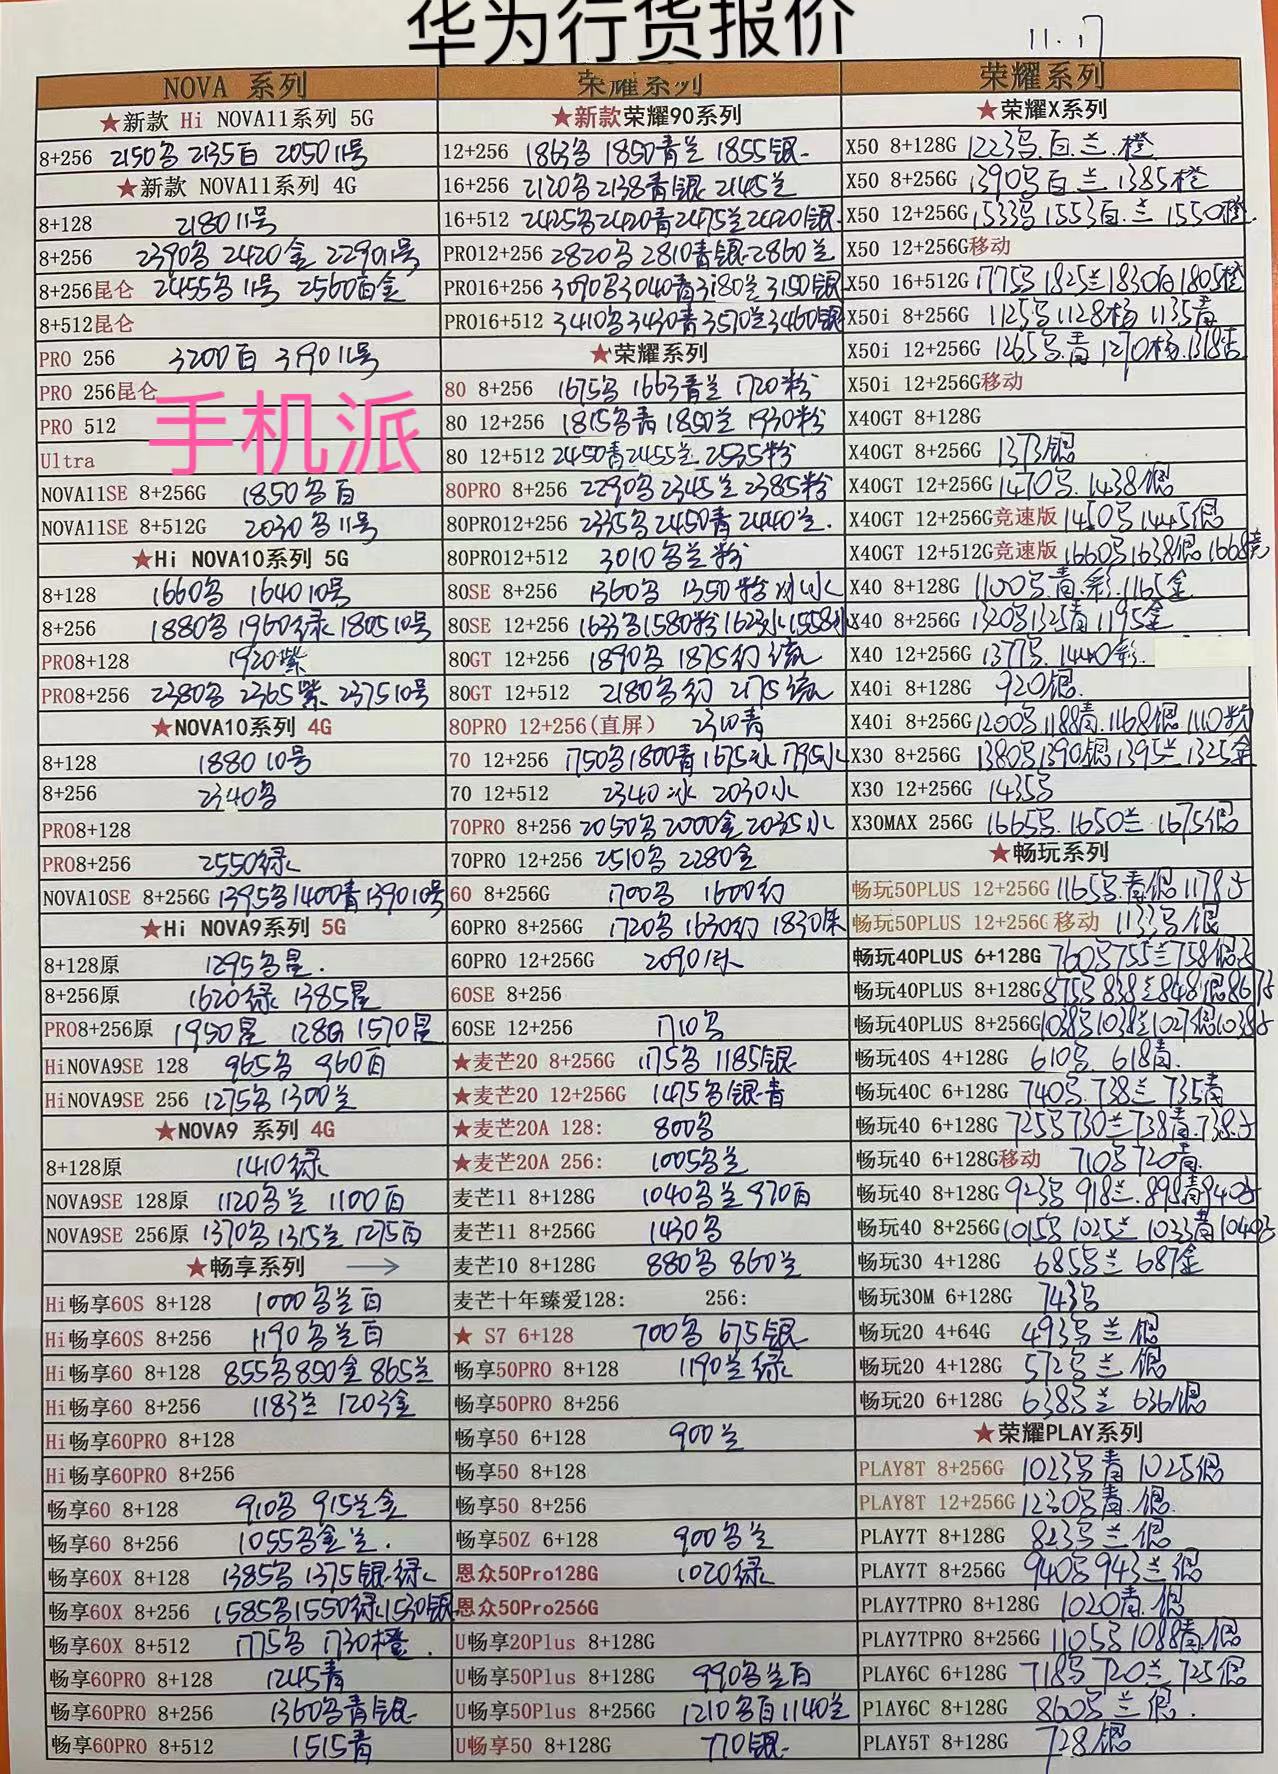 华为行货报价
11.17
NOVA 系列
★新款 Hi NOVA11系列 5G
8+256 2150多 2135白 2050 11号
★新款 NOVA11系列 4G
8+128 2180 11号
8+256 2390多 2420金 2290 11号
8+256昆仑 2455多 11号 2560白金
8+512昆仑
PRO 256 3200白 3190 11号
PRO 256昆仑
PRO 512
Ultra
手机派
NOVA11SE 8+256G 1850多白
NOVA11SE 8+512G 2030多 11号
★Hi NOVA10系列 5G
8+128 1660多 1640 10号
8+256 1880多 1960绿 1805 10号
PRO8+128 1920紫
PRO8+256 2380多 2365紫 2375 10号
★NOVA10系列 4G
8+128 1880 10号
8+256 2340多
PRO8+128
PRO8+256 2550绿
NOVA10SE 8+256G 1395多 1400青 1390 10号
★Hi NOVA9系列 5G
8+128原 1295多星.
8+256原 1620绿 1385星
PRO8+256原 1950星 128G 1570星
HiNOVA9SE 128 965多 960白
HiNOVA9SE 256 1275多 1300兰
★NOVA9 系列 4G
8+128原 1410绿
NOVA9SE 128原 1120多兰 1100白
NOVA9SE 256原 1370多 1315兰 1275白
★畅享系列 →
Hi畅享60S 8+128 1000多兰白
Hi畅享60S 8+256 1190多兰白
Hi畅享60 8+128 855多 850金 865兰
Hi畅享60 8+256 1183兰 1203金
Hi畅享60PRO 8+128
Hi畅享60PRO 8+256
畅享60 8+128 910多 915兰金
畅享60 8+256 1055多金兰.
畅享60X 8+128 1385多 1375银.绿
畅享60X 8+256 1585多 1550绿 1530银
畅享60X 8+512 1775多 1730橙.
畅享60PRO 8+128 1245青
畅享60PRO 8+256 1360多青银
畅享60PRO 8+512 1515青
荣耀系列
★新款荣耀90系列
12+256 1863多 1850青兰 1855银
16+256 2120多 2138青银 2145兰
16+512 2425多 2420青 2475兰 2420银
PRO12+256 2820多 2810青银 2860兰
PRO16+256 3090多 3040青 3180兰 3150银
PRO16+512 3410多 3430青 3570兰 3460银
★荣耀系列
80 8+256 1675多 1663青兰 1720粉
80 12+256 1815多青 1850兰 1930粉
80 12+512 2450青 2455兰 2535粉
80PRO 8+256 2290多 2345兰 2385粉
80PRO12+256 2335多 2450青 2440兰.
80PRO12+512 3010多兰粉
80SE 8+256 1360多 1350粉
80SE 12+256 1633多 1580粉 1623冰 1558
80GT 12+256 1890多 1875幻流
80GT 12+512 2180多幻 2175流
80PRO 12+256(直屏) 2310青
70 12+256 1750多 1800青 1675冰 1795水
70 12+512 2340冰 2030水
70PRO 8+256 2050多 2000金 2035水
70PRO 12+256 2510多 2280金
60 8+256G 1700多 1600幻
60PRO 8+256G 1720多 1630幻 1830
60PRO 12+256G 2090
60SE 8+256
60SE 12+256 1710多
★麦芒20 8+256G 1175多 1185银
★麦芒20 12+256G 1475多银青
★麦芒20A 128: 800多
★麦芒20A 256: 1005多兰
麦芒11 8+128G 1040多兰 970白
麦芒11 8+256G 1430多
麦芒10 8+128G 880多 860兰
麦芒十年臻爱128: 256:
★ S7 6+128 700多 675银
畅享50PRO 8+128 1190兰绿
畅享50PRO 8+256
畅享50 6+128 900兰
畅享50 8+128
畅享50 8+256
畅享50Z 6+128 900多兰
恩众50Pro128G 1020绿
恩众50Pro256G
U畅享20Plus 8+128G
U畅享50Plus 8+128G 990多兰白
U畅享50Plus 8+256G 1210多白 1140兰
U畅享50 8+128G 770银
荣耀系列
★荣耀X系列
X50 8+128G 1223多.白.兰.橙
X50 8+256G 1390多白兰 1385橙
X50 12+256G 1533多 1553白.兰 1550橙
X50 12+256G移动
X50 16+512G 1775多 1825兰 1830白 1805橙
X50i 8+256G 1125多 1128杨 1135青
X50i 12+256G 1265多.青 1270杨.1318
X50i 12+256G移动
X40GT 8+128G
X40GT 8+256G 1373银
X40GT 12+256G 1470多.1438银
X40GT 12+256G竞速版 1450多 1445银
X40GT 12+512G竞速版 1660多 1638银 1668竞
X40 8+128G 1100多.青.彩.1165金
X40 8+256G 1320多 1325青 1195金
X40 12+256G 1377多.1440彩.
X40i 8+128G 920银.
X40i 8+256G 1200多 1188青.1168银 1110粉
X30 8+256G 1380多 1390银 1395兰 1325金
X30 12+256G 1435多
X30MAX 256G 1665多.1650兰 1675银
★畅玩系列
畅玩50PLUS 12+256G 1165多青银 1178
畅玩50PLUS 12+256G 移动 1133多/银
畅玩40PLUS 6+128G 760多 755兰 758银
畅玩40PLUS 8+128G 875多 838兰 848银 867
畅玩40PLUS 8+256G 1038多 1038兰 1027银 1038
畅玩40S 4+128G 610多.618青.
畅玩40C 6+128G 740多.738兰 735青
畅玩40 6+128G 725多 730兰 738青.738
畅玩40 6+128G移动 710多 720青
畅玩40 8+128G 923多 918兰.898青 840
畅玩40 8+256G 1015多 1025兰 1033青 1040
畅玩30 4+128G 685多兰 687金
畅玩30M 6+128G 743多
畅玩20 4+64G 493多兰银
畅玩20 4+128G 572多兰.银
畅玩20 6+128G 638多兰 636银
★荣耀PLAY系列
PLAY8T 8+256G 1023多青 1025银
PLAY8T 12+256G 1230多青.银.
PLAY7T 8+128G 823多兰银
PLAY7T 8+256G 940多 943兰银
PLAY7TPRO 8+128G 1020青.银
PLAY7TPRO 8+256G 1105多 1088青.银
PLAY6C 6+128G 718多 720兰 725银
PlAY6C 8+128G 860多兰银.
PLAY5T 8+128G 728银